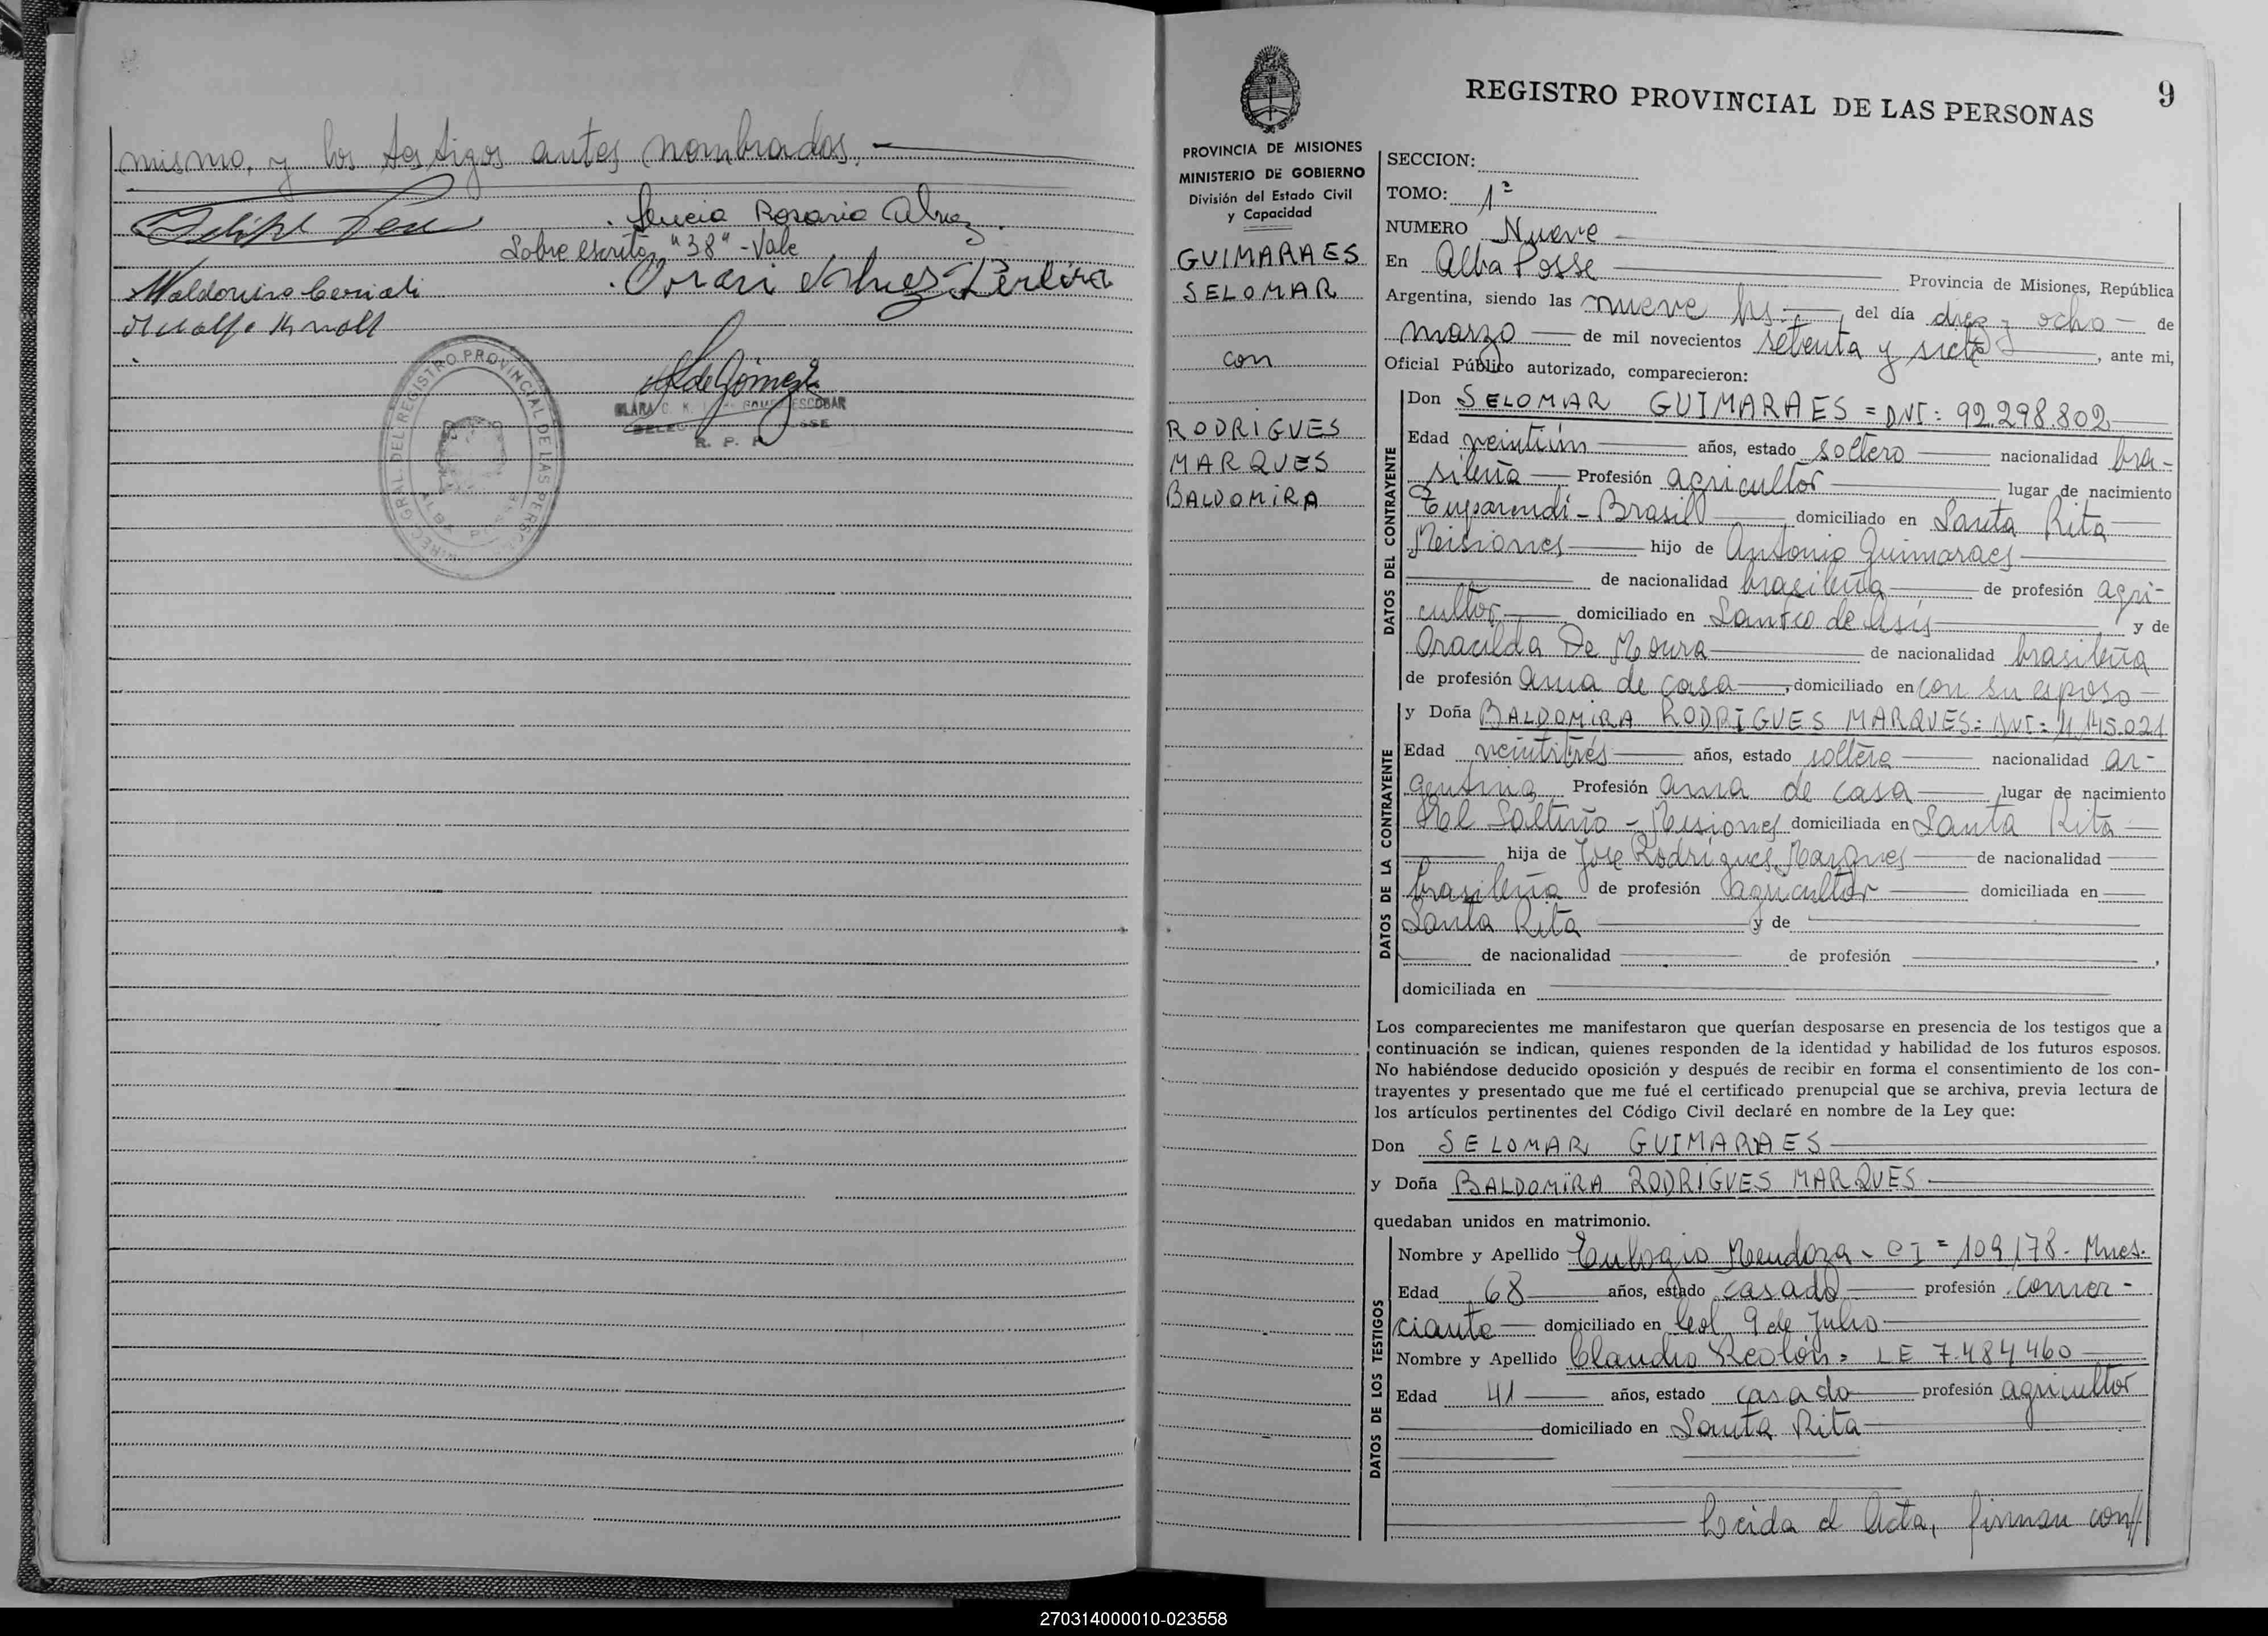 mismo, y los testigos antes nombrados.
Lucia Rosario Alvez
Sobre escrito "38" - Vale
DIREC. GRAL. DEL REGISTRO PROVINCIAL DE LAS PERSONAS
ALBA POSSE
ESCOBAR
R. P. P.
9
REGISTRO PROVINCIAL DE LAS PERSONAS
PROVINCIA DE MISIONES
MINISTERIO DE GOBIERNO
División del Estado Civil
y Capacidad
GUIMARAES
SELOMAR
con
RODRIGUES
MARQUES
BALDOMIRA
SECCION:
TOMO: 1º
NUMERO Nueve
En Alba Posse Provincia de Misiones, República
Argentina, siendo las nueve hs. del día diez y ocho de
marzo de mil novecientos setenta y siete, ante mi,
Oficial Público autorizado, comparecieron:
DATOS DEL CONTRAYENTE
Don SELOMAR GUIMARAES = DNI: 92.298.802
Edad veintiún años, estado soltero nacionalidad bra-
sileña Profesión agricultor lugar de nacimiento
Tuparendi - Brasil domiciliado en Santa Rita
Misiones hijo de Antonio Guimaraes
de nacionalidad brasileña de profesión agri-
cultor domiciliado en San Fco de Asís y de
Oracilda De Moura de nacionalidad brasileña
de profesión ama de casa, domiciliado en con su esposo
DATOS DE LA CONTRAYENTE
y Doña BALDOMIRA RODRIGUES MARQUES = DNI = 11.145.021
Edad veintitrés años, estado soltera nacionalidad ar-
gentina Profesión ama de casa lugar de nacimiento
Saltiño - Misiones domiciliada en Santa Rita
hija de Jose Rodrigues Marques de nacionalidad
brasileña de profesión agricultor domiciliada en
Santa Rita y de
de nacionalidad de profesión ,
domiciliada en
Los comparecientes me manifestaron que querían desposarse en presencia de los testigos que a
continuación se indican, quienes responden de la identidad y habilidad de los futuros esposos.
No habiéndose deducido oposición y después de recibir en forma el consentimiento de los con-
trayentes y presentado que me fué el certificado prenupcial que se archiva, previa lectura de
los artículos pertinentes del Código Civil declaré en nombre de la Ley que:
Don SELOMAR GUIMARAES
y Doña BALDOMIRA RODRIGUES MARQUES
quedaban unidos en matrimonio.
DATOS DE LOS TESTIGOS
Nombre y Apellido Eulogio Mendoza - CI = 109178 - Mnes.
Edad 68 años, estado casado profesión comer-
ciante domiciliado en Col 9 de Julio
Nombre y Apellido Claudio = LE 7.484.460
Edad 41 años, estado casado profesión agricultor
domiciliado en Santa Rita
Leida el Acta, firman con//
270314000010-023558